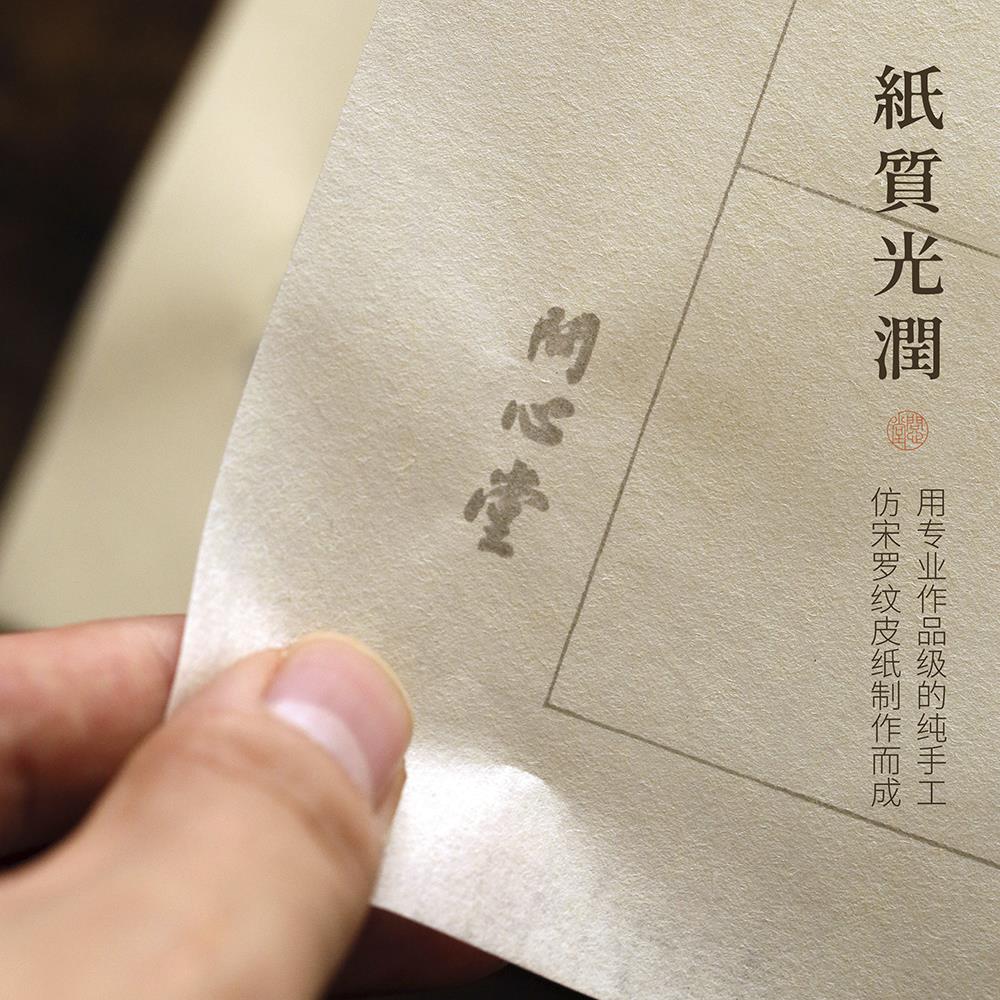 紙質光潤
用专业作品级的纯手工
仿宋罗纹皮纸制作而成
心堂